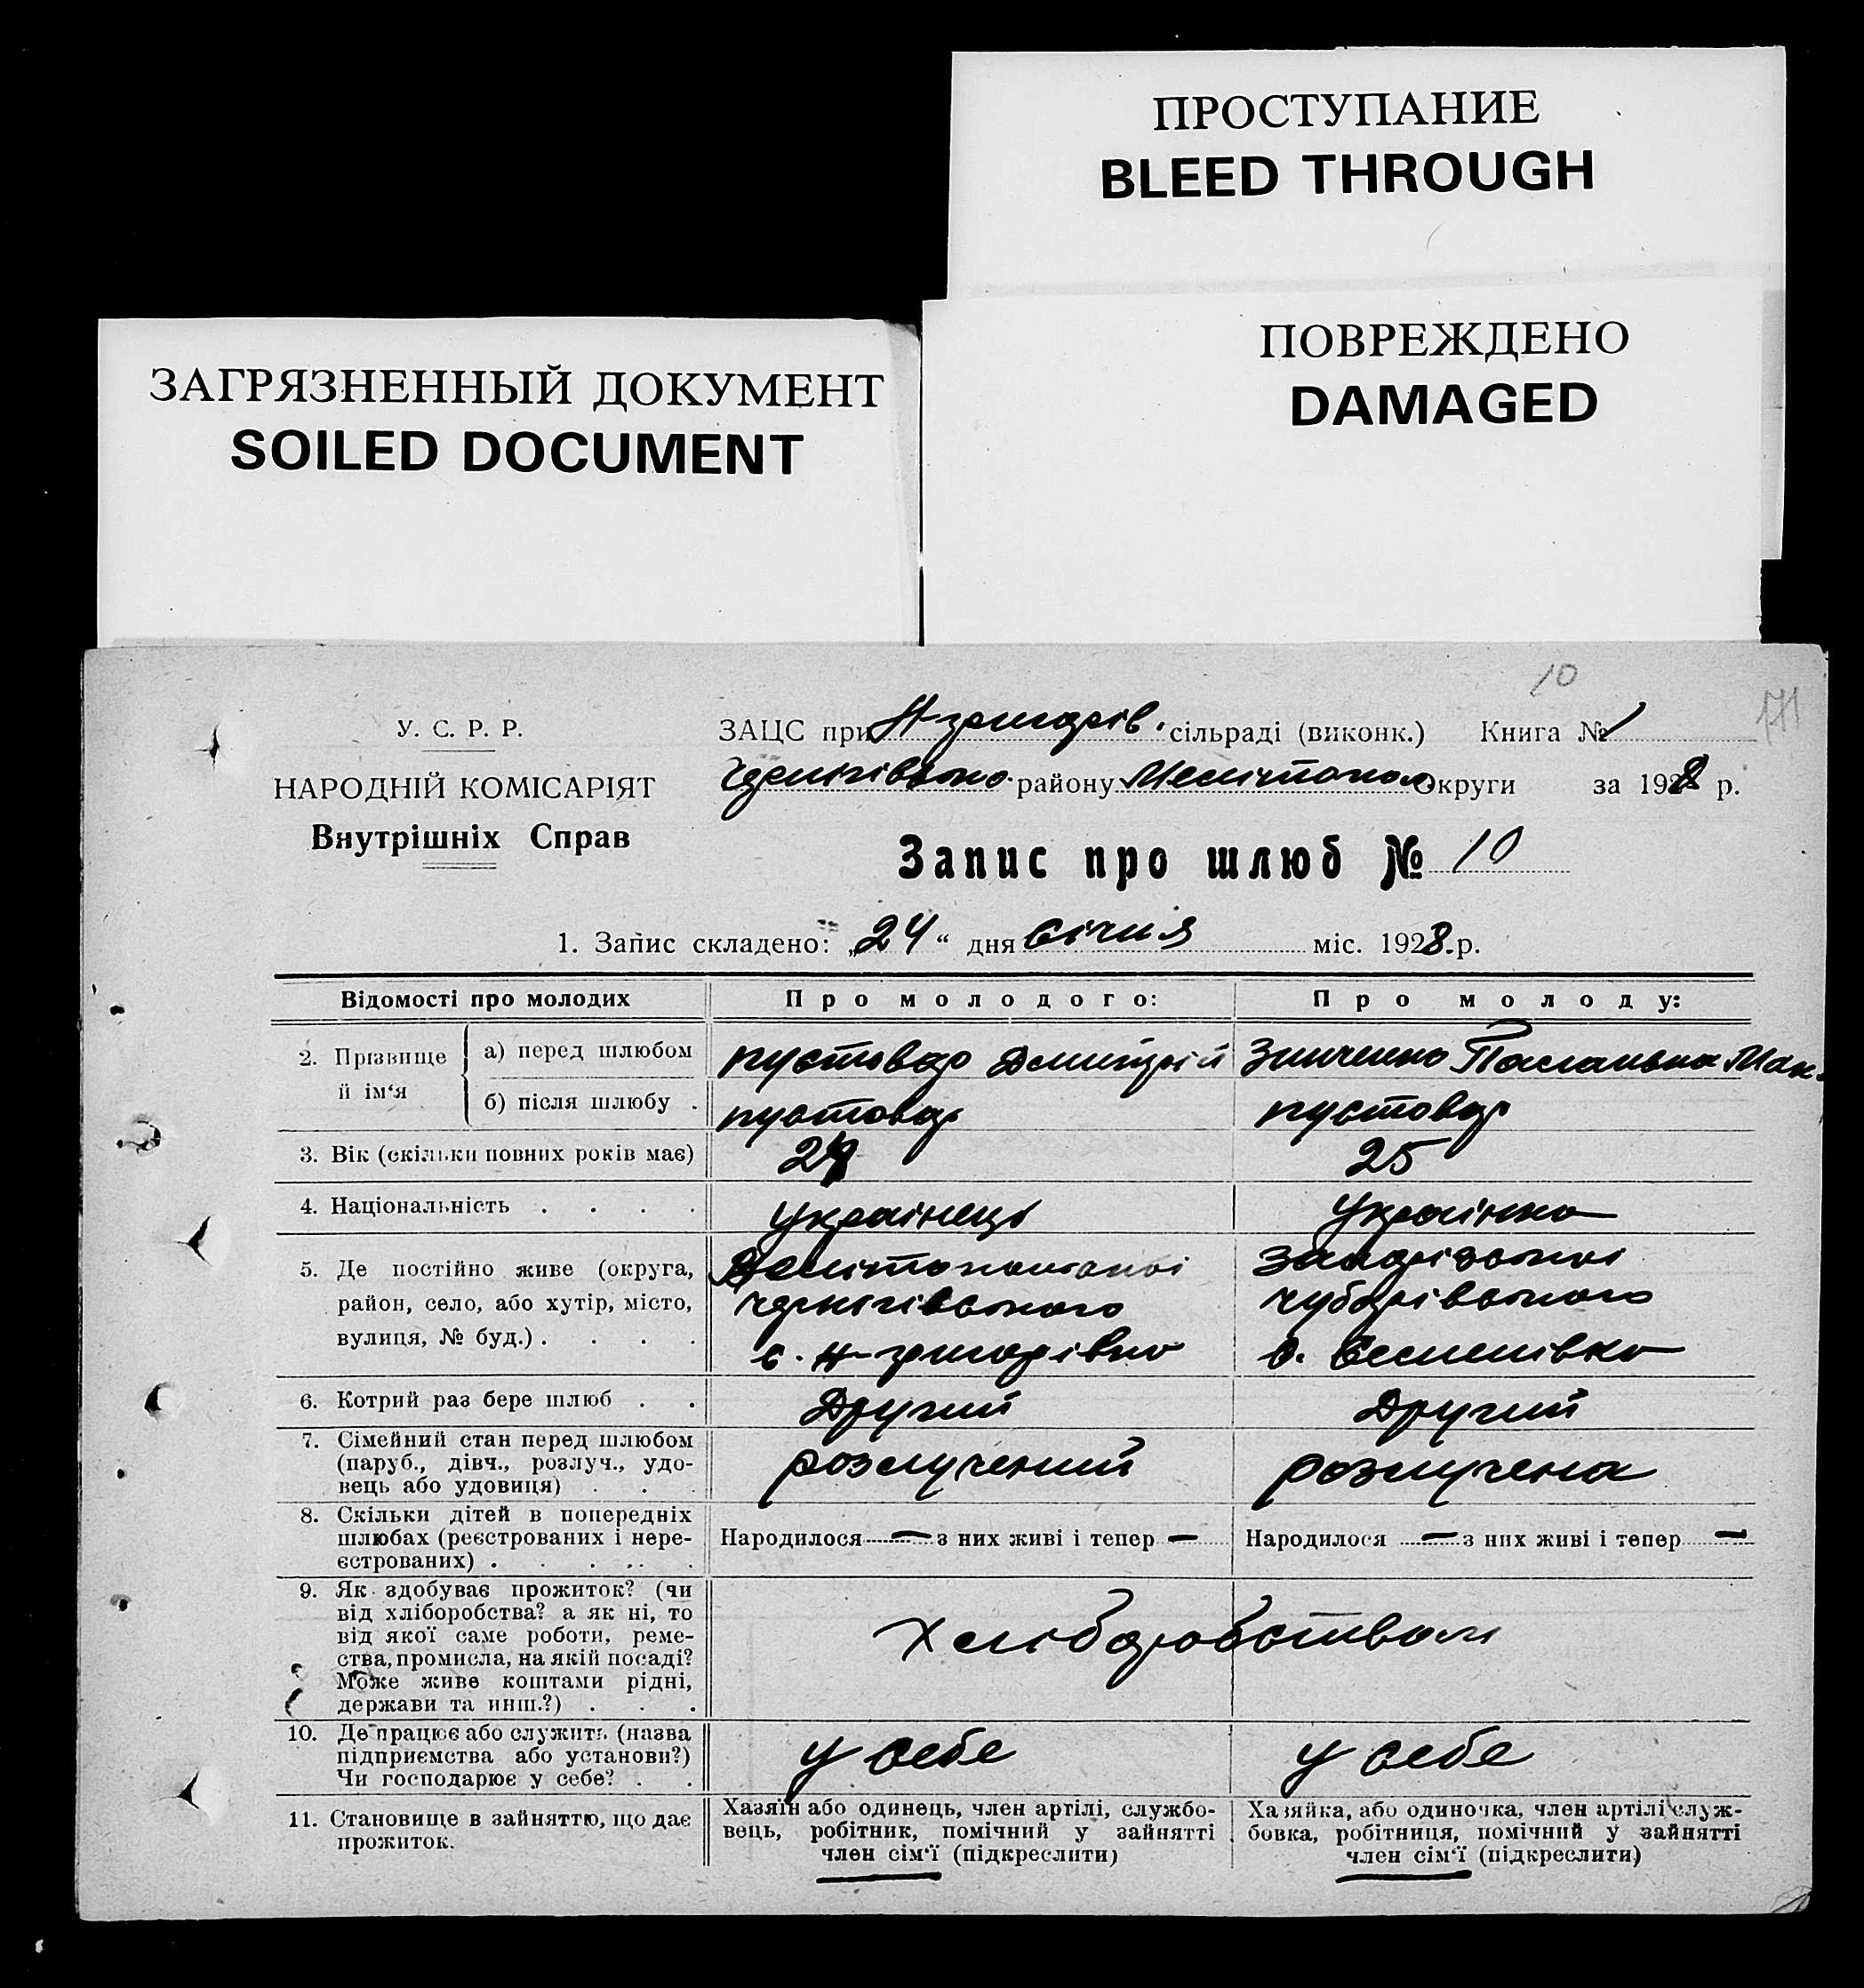 ПРОСТУПАНИЕ
BLEED THROUGH
ПОВРЕЖДЕНО
DAMAGED
ЗАГРЯЗНЕННЫЙ ДОКУМЕНТ
SOILED DOCUMENT
10
У. С. Р. Р.
НАРОДНІЙ КОМІСАРІЯТ
Внутрішніх Справ
ЗАЦС при Н-григорів. сільраді (виконк.) Книга № 1
району Мелітопол округи за 1928 р.
Запис про шлюб № 10
1. Запис складено: „24“ дня січня міс. 1928 р.
Відомості про молодих Про молодого: Про молоду:
2. Прізвище й ім‘я
а) перед шлюбом пустовар Дмитрій Зинченко
б) після шлюбу . пустовар пустовар
3. Вік (скільки повних років має) 25
4. Національність . . . . українець українка
5. Де постійно живе (округа, район, село, або хутір, місто, вулиця, № буд.) . . . .
Мелітопольської
чернігівського
с. Н-григорівка
Запорізької
чубарівського
с.
6. Котрий раз бере шлюб . . Другий Другий
7. Сімейний стан перед шлюбом
(паруб., дівч., розлуч., удо-
вець або удовиця) . . . розлучений розлучена
8. Скільки дітей в попередніх
шлюбах (реєстрованих і нере-
єстрованих) . . . . . Народилося — з них живі і тепер — Народилося — з них живі і тепер —
9. Як здобуває прожиток? (чи
від хліборобства? а як ні, то
від якої саме роботи, реме-
ства, промисла, на якій посаді?
Може живе коштами рідні,
держави та инш.?) . . .
Хліборобством
10. Де працює або служить (назва
підприємства або установи?)
Чи господарює у себе? . . у себе у себе
11. Становище в зайняттю, що дає
прожиток.
Хазяїн або одинець, член артілі, службо-
вець, робітник, помічний у зайнятті
член сім‘ї (підкреслити)
Хазяйка, або одиночка, член артілі служ-
бовка, робітниця, помічний у зайнятті
член сім‘ї (підкреслити)